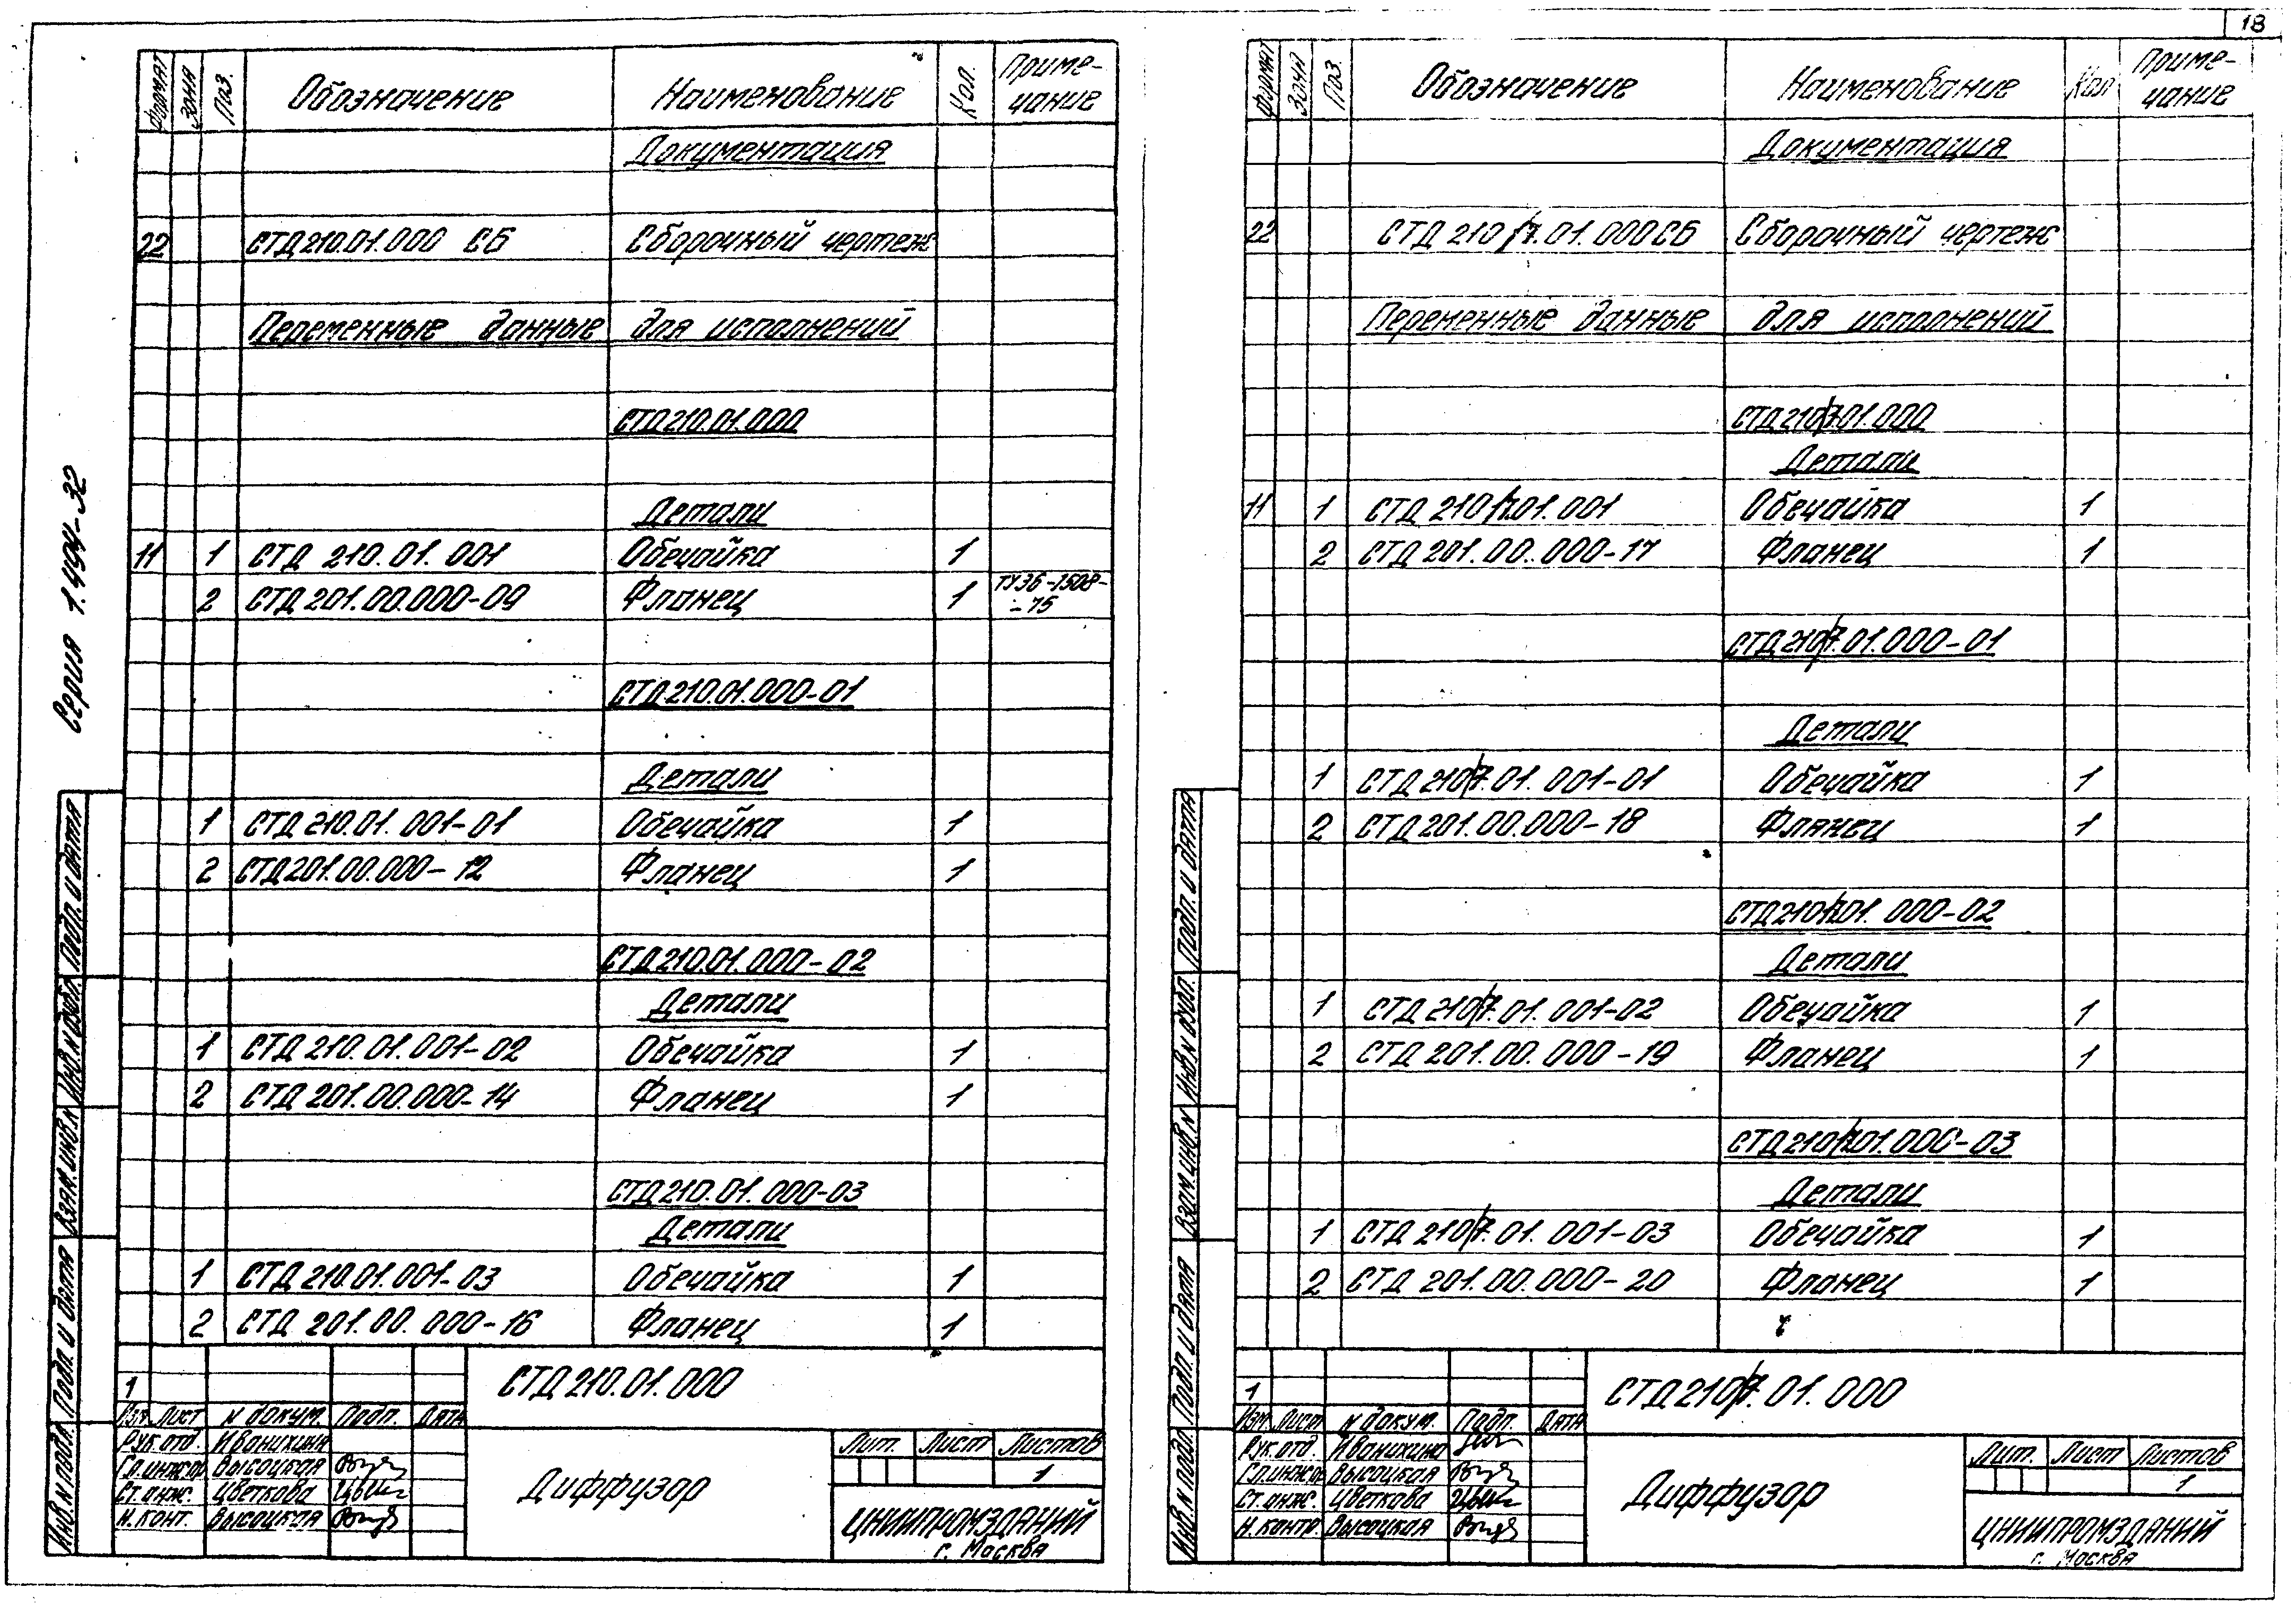 18
Серия 1.494-32
Формат Зона Поз. Обозначение Наименование Кол. Приме-
чание
Документация
22 СТД210.01.000 СБ Сборочный чертеж
Переменные данные для исполнений
СТД210.01.000
Детали
11 1 СТД 210.01.001 Обечайка 1
2 СТД201.00.000-09 Фланец 1 ТУ36-1508-
-75
СТД210.01.000-01
Детали
1 СТД 210.01.001-01 Обечайка 1
2 СТД201.00.000-12 Фланец 1
СТД210.01.000-02
Детали
1 СТД 210.01.001-02 Обечайка 1
2 СТД 201.00.000-14 Фланец 1
СТД210.01.000-03
Детали
1 СТД 210.01.001-03 Обечайка 1
2 СТД 201.00.000-16 Фланец 1
Инв.N подл. Подп. и дата Взам.инв.N Инв.N дубл. Подп. и дата
1
СТД210.01.000
Изм Лист N докум. Подп. Дата
Рук.отд. Иванихина
Гл.инж.пр Высоцкая
Ст.инж. Цветкова
Н.конт. Высоцкая
Диффузор
Лит. Лист Листов
1
ЦНИИПРОМЗДАНИЙ
г. Москва
Формат Зона Поз. Обозначение Наименование Кол Приме-
чание
Документация
22 СТД 210/7.01.000СБ Сборочный чертеж
Переменные данные для исполнений
СТД210/7.01.000
Детали
11 1 СТД 210/7.01.001 Обечайка 1
2 СТД 201.00.000-17 Фланец 1
СТД210/7.01.000-01
Детали
1 СТД 210/7.01.001-01 Обечайка 1
2 СТД 201.00.000-18 Фланец 1
СТД210/7.01.000-02
Детали
1 СТД 210/7.01.001-02 Обечайка 1
2 СТД 201.00.000-19 Фланец 1
СТД210/7.01.000-03
Детали
1 СТД 210/7.01.001-03 Обечайка 1
2 СТД 201.00.000-20 Фланец 1
Инв.N подл. Подп. и дата Взам.инв.N Инв.N дубл. Подп. и дата
1
СТД210/7.01.000
Изм. Лист N докум. Подп. Дата
Рук.отд. Иванихина
Гл.инж.пр Высоцкая
Ст.инж. Цветкова
Н.контр. Высоцкая
Диффузор
Лит. Лист Листов
1
ЦНИИПРОМЗДАНИЙ
г. Москва